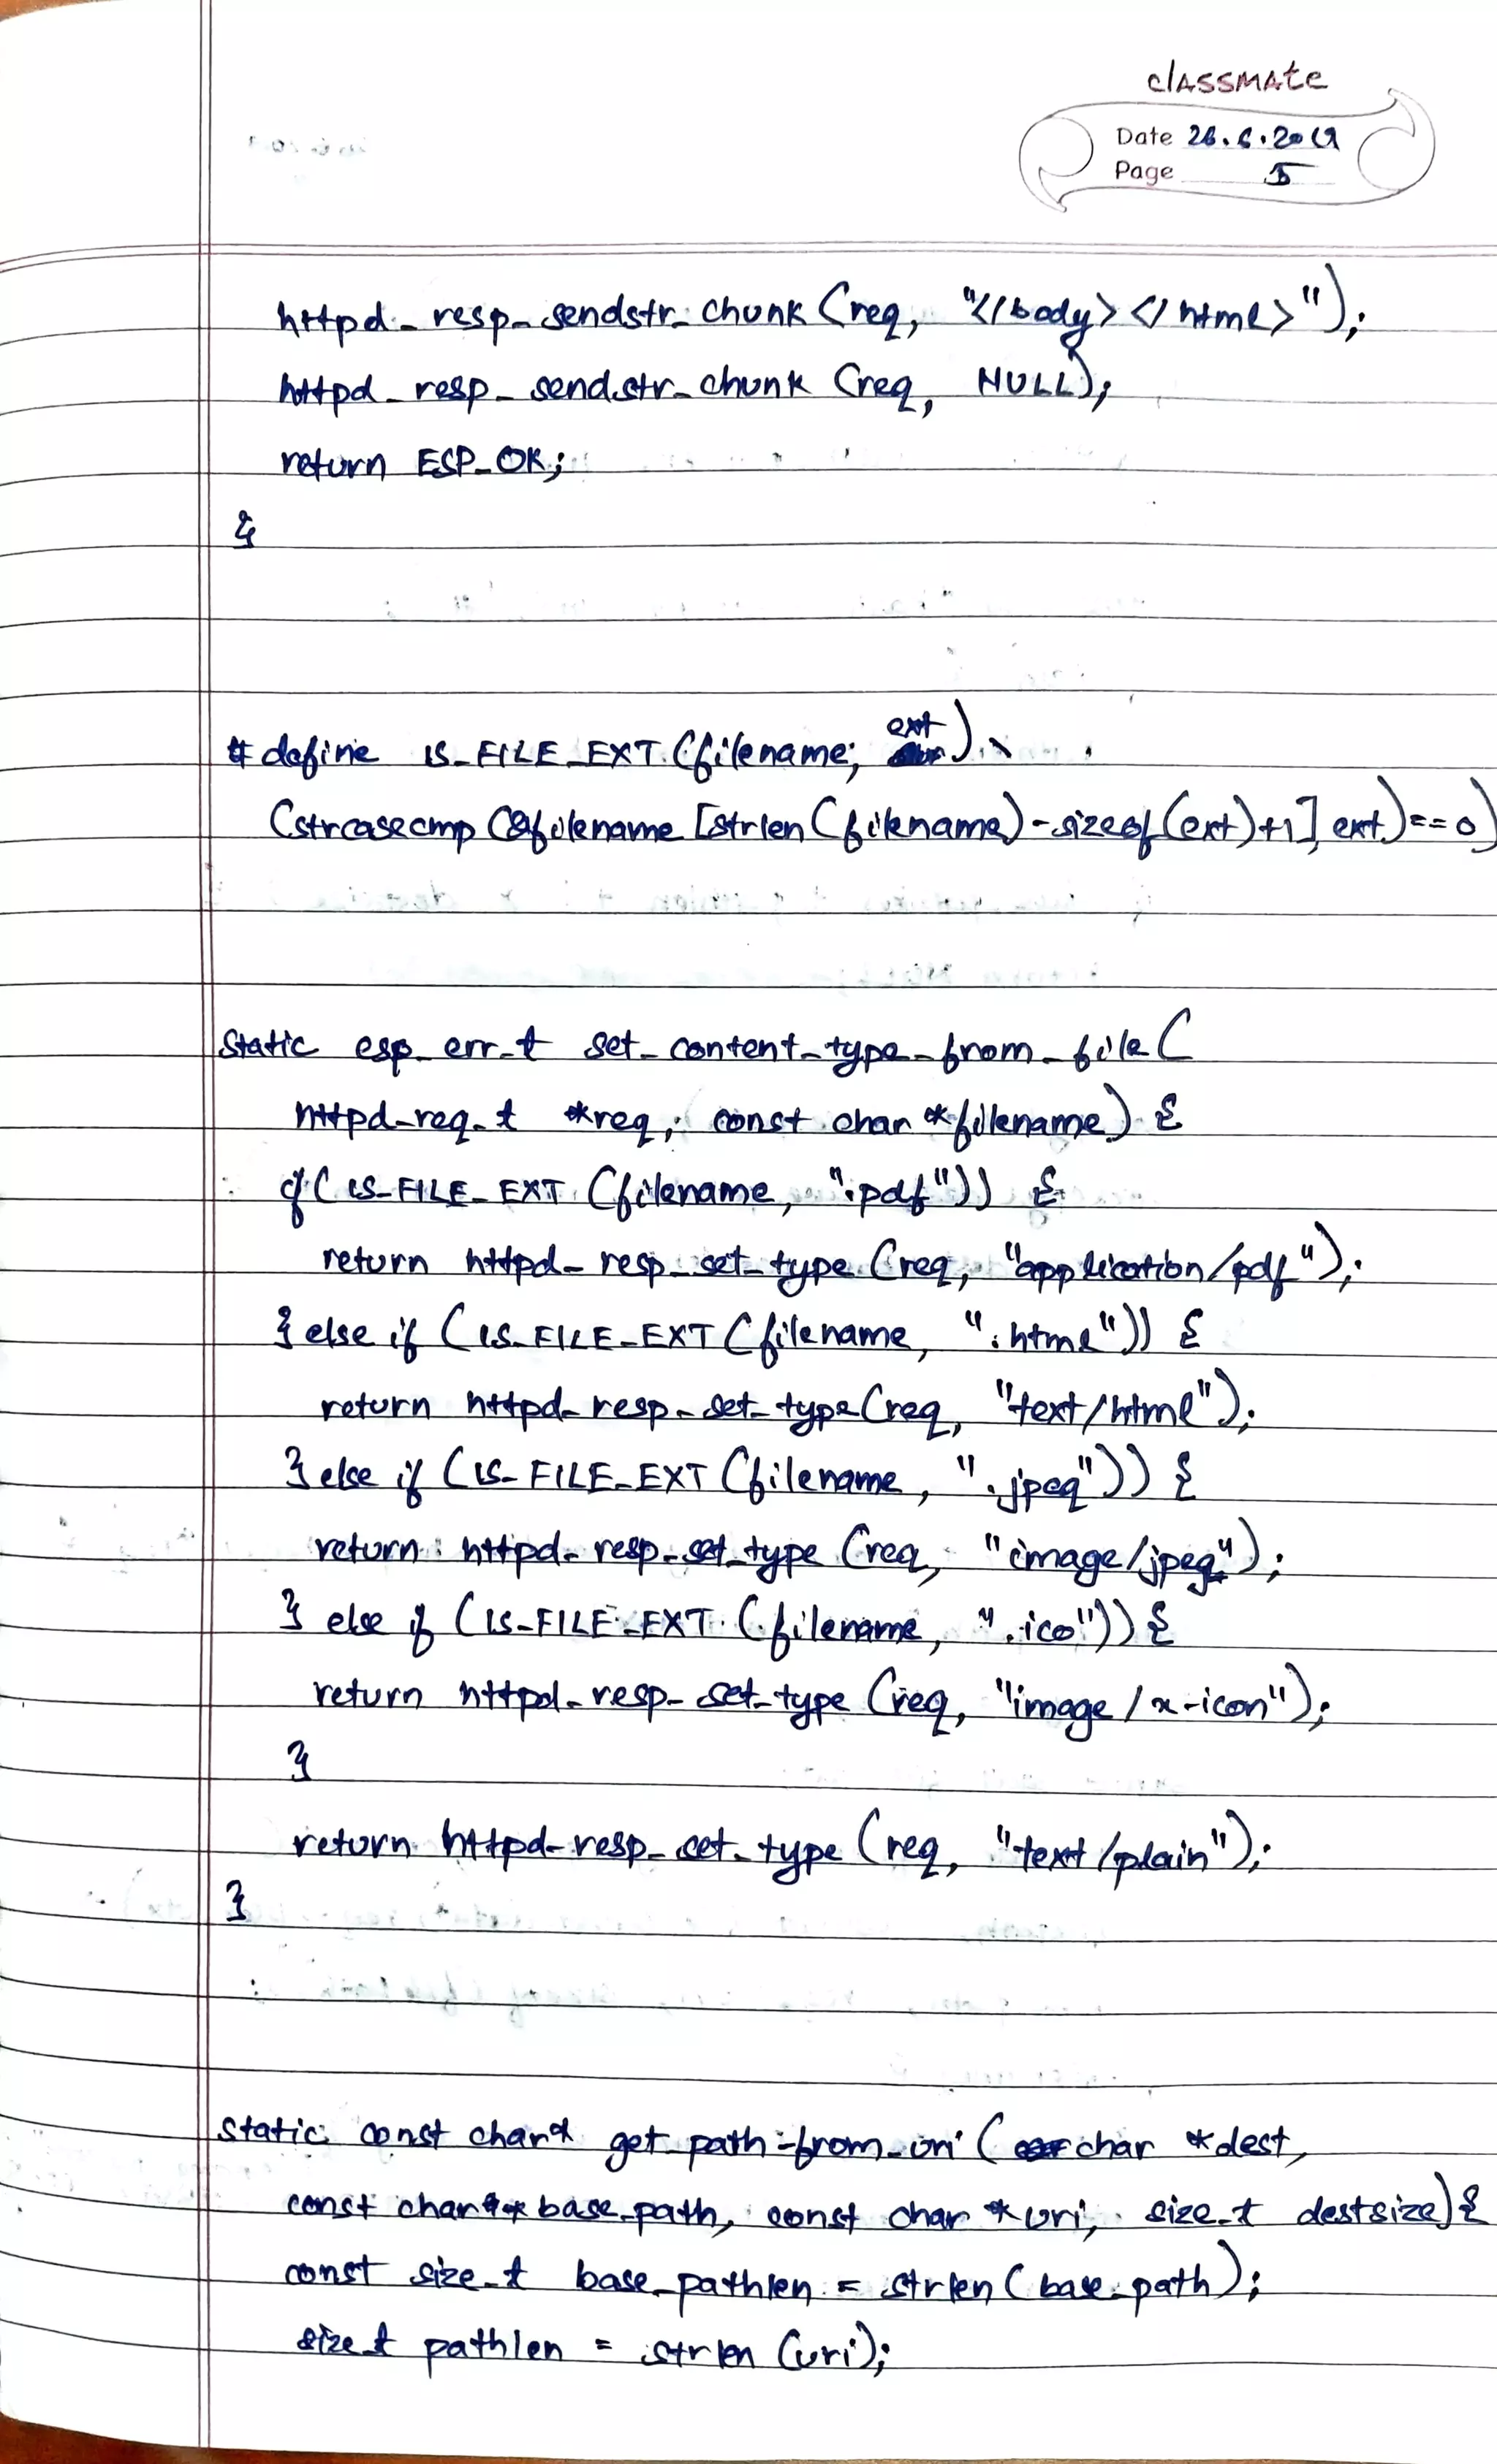 classmate
Date 26.6.2019
Page 5
httpd_resp_sendstr_chunk (req, "</body></html>");
httpd_resp_sendstr_chunk (req, NULL);
return ESP_OK;
}
#define IS_FILE_EXT (filename, ext) \
(strcasecmp (&filename [strlen (filename) - sizeof (ext) + 1], ext) == 0)
static esp_err_t set_content_type_from_file (
httpd_req_t *req, const char *filename) {
if (IS_FILE_EXT (filename, ".pdf")) {
return httpd_resp_set_type (req, "application/pdf");
} else if (IS_FILE_EXT (filename, ".html")) {
return httpd_resp_set_type (req, "text/html");
} else if (IS_FILE_EXT (filename, ".jpeg")) {
return httpd_resp_set_type (req, "image/jpeg");
} else if (IS_FILE_EXT (filename, ".ico")) {
return httpd_resp_set_type (req, "image/x-icon");
}
return httpd_resp_set_type (req, "text/plain");
}
static const char* get_path_from_uri (char *dest,
const char* base_path, const char *uri, size_t destsize) {
const size_t base_pathlen = strlen (base_path);
size_t pathlen = strlen (uri);